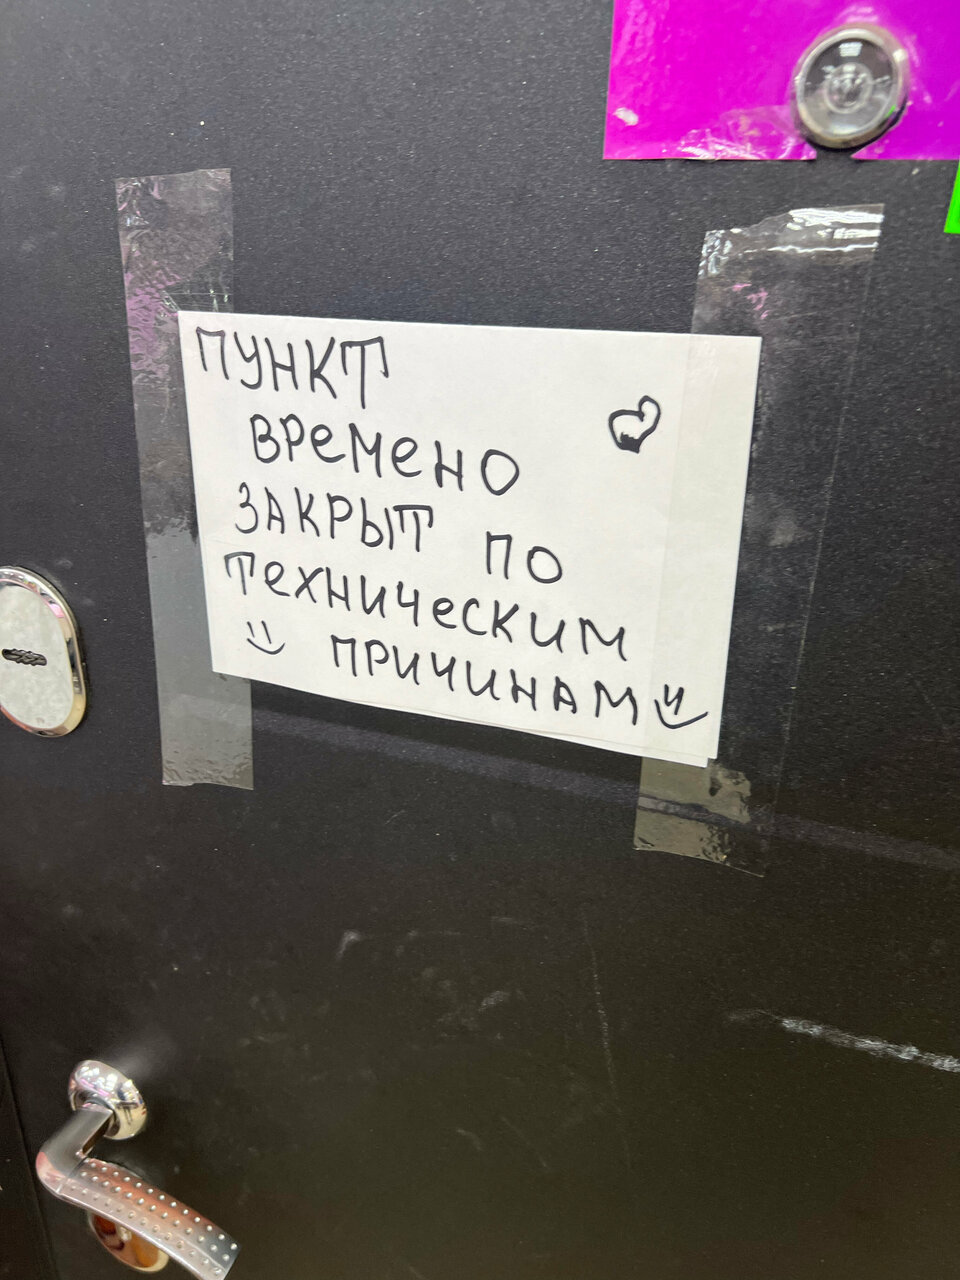 ПУНКТ
ВРеМеНО
ЗАКРЫТ ПО
ТеХНИЧеСКИМ
ПРИЧИНАМ